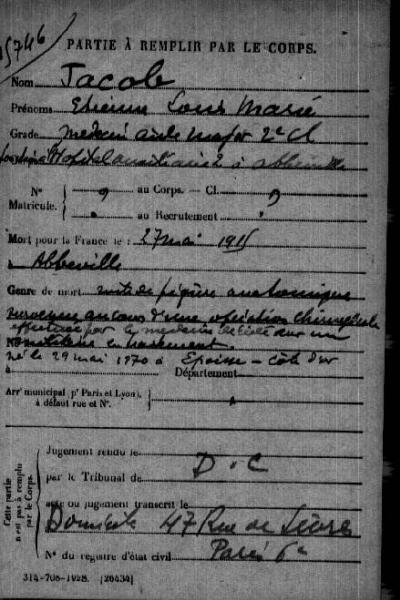 5746
PARTIE À REMPLIR PAR LE CORPS.
Nom Jacob
Prénoms Etienne Louis Marie
Grade médecin aide major 2e Cl
Hôpital auxiliaire 2 à Abbeville
N° au Corps. — Cl.
Matricule. au Recrutement
Mort pour la France le : 27 mai 1915
à Abbeville
Genre de mort suite de piqûre anatomique
survenue au cours d'une opération chirurgicale
effectuée par le médecin décédé sur un
militaire en traitement.
Né le 29 mai 1870 à Epoisse – Côte d'or
à Département
Arr¹ municipal (pʳ Paris et Lyon),
à défaut rue et N°.
Cette partie
n'est pas à remplir
par le Corps.
Jugement rendu le
par le Tribunal de D.C
acte ou jugement transcrit le
Domicile 47 Rue de Sèvres
Paris 6e
N° du registre d'état civil
314-708-1928. [26434]